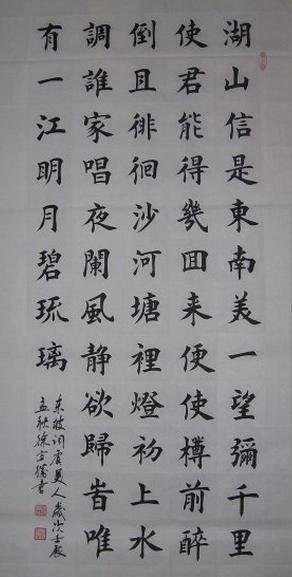 湖山信是東南美一望彌千里
使君能得幾回来便使樽前醉
倒且徘徊沙河塘裡燈初上水
調誰家唱夜闌風静欲歸旹唯
有一江明月碧琉璃
東坡詞虞美人歲次壬辰
孟秋徐書